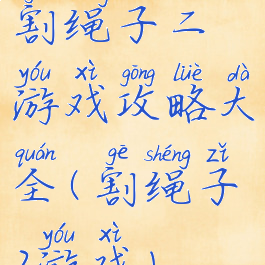 割绳子二
yóu xì gōng lüè dà
游戏攻略大
quán gē shéng zǐ
全(割绳子
yóu xì
2游戏)